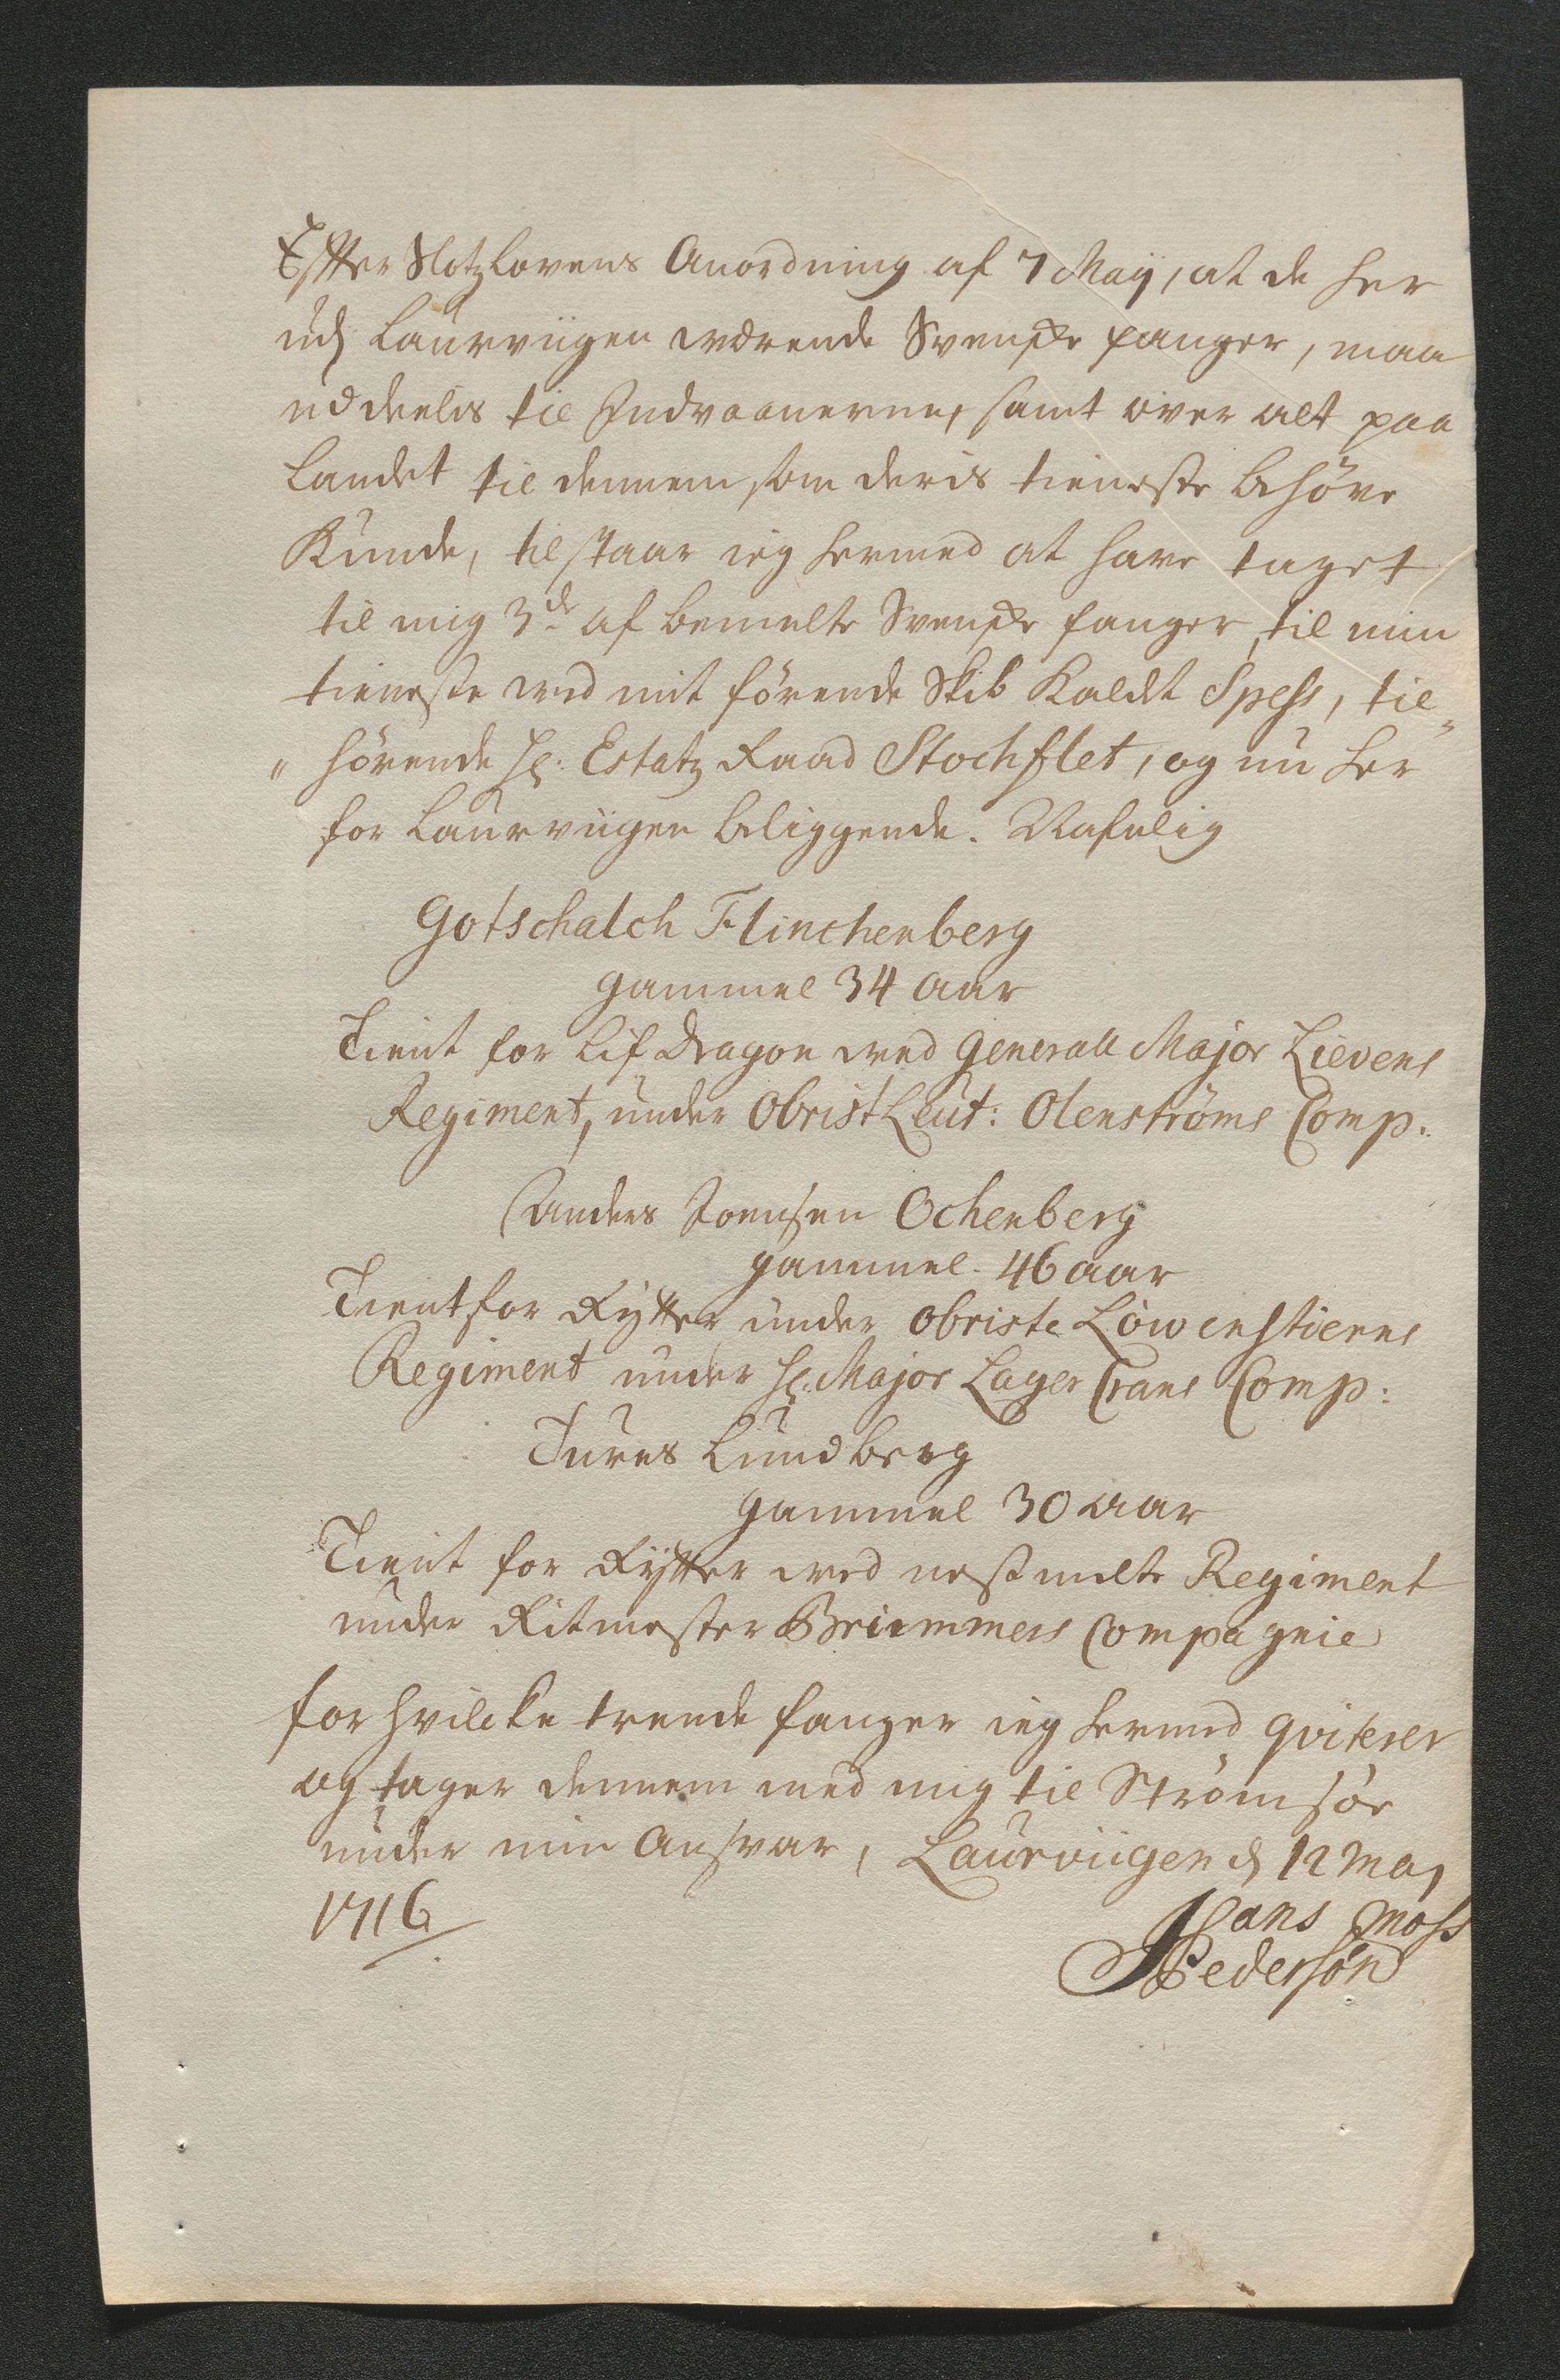 Effter Slotzlovens Anordning af 7 Maÿ, at de her
udj Laurviigen værende Svenske fanger, maa
uddeelis til Indvaanerne, samt over alt paa
Landet til dennem som deris tieneste behøve
Kunde, tilstaar ieg hermed at have taget
til mig 3de af bemelte Svenske fanger, til min
tieneste ved mit førende Skib Kaldt Spess, til„
„hørende Hr: Estatz Raad Stochflet, og nu her
for Laurviigen beliggende. Nafnlig
Gotschalch Flinchenberg
gammel 34 aar
Tient for Lif Dragon ved Generall Major Lievens
Regiment, under Obrist Leut: Olenströms Comp.
Anders Joensen Ochenberg
gammel 46 aar
Tient for Rÿtter under Obriste Löwenstierns
Regiment under Hr. Major Lager Crans Comp:
Tures Lundberg
gammel 30 aar
Tient for Rÿtter ved nestmelte Regiment
under Ritmester Briemmers Compagnie
for hvilcke trende fanger ieg hermed qviterer
og tager dennem med mig til Strømsøe
under min Ansvar, Laurviigen d 12 Maj
1716
Hans Moss
Pedersøn